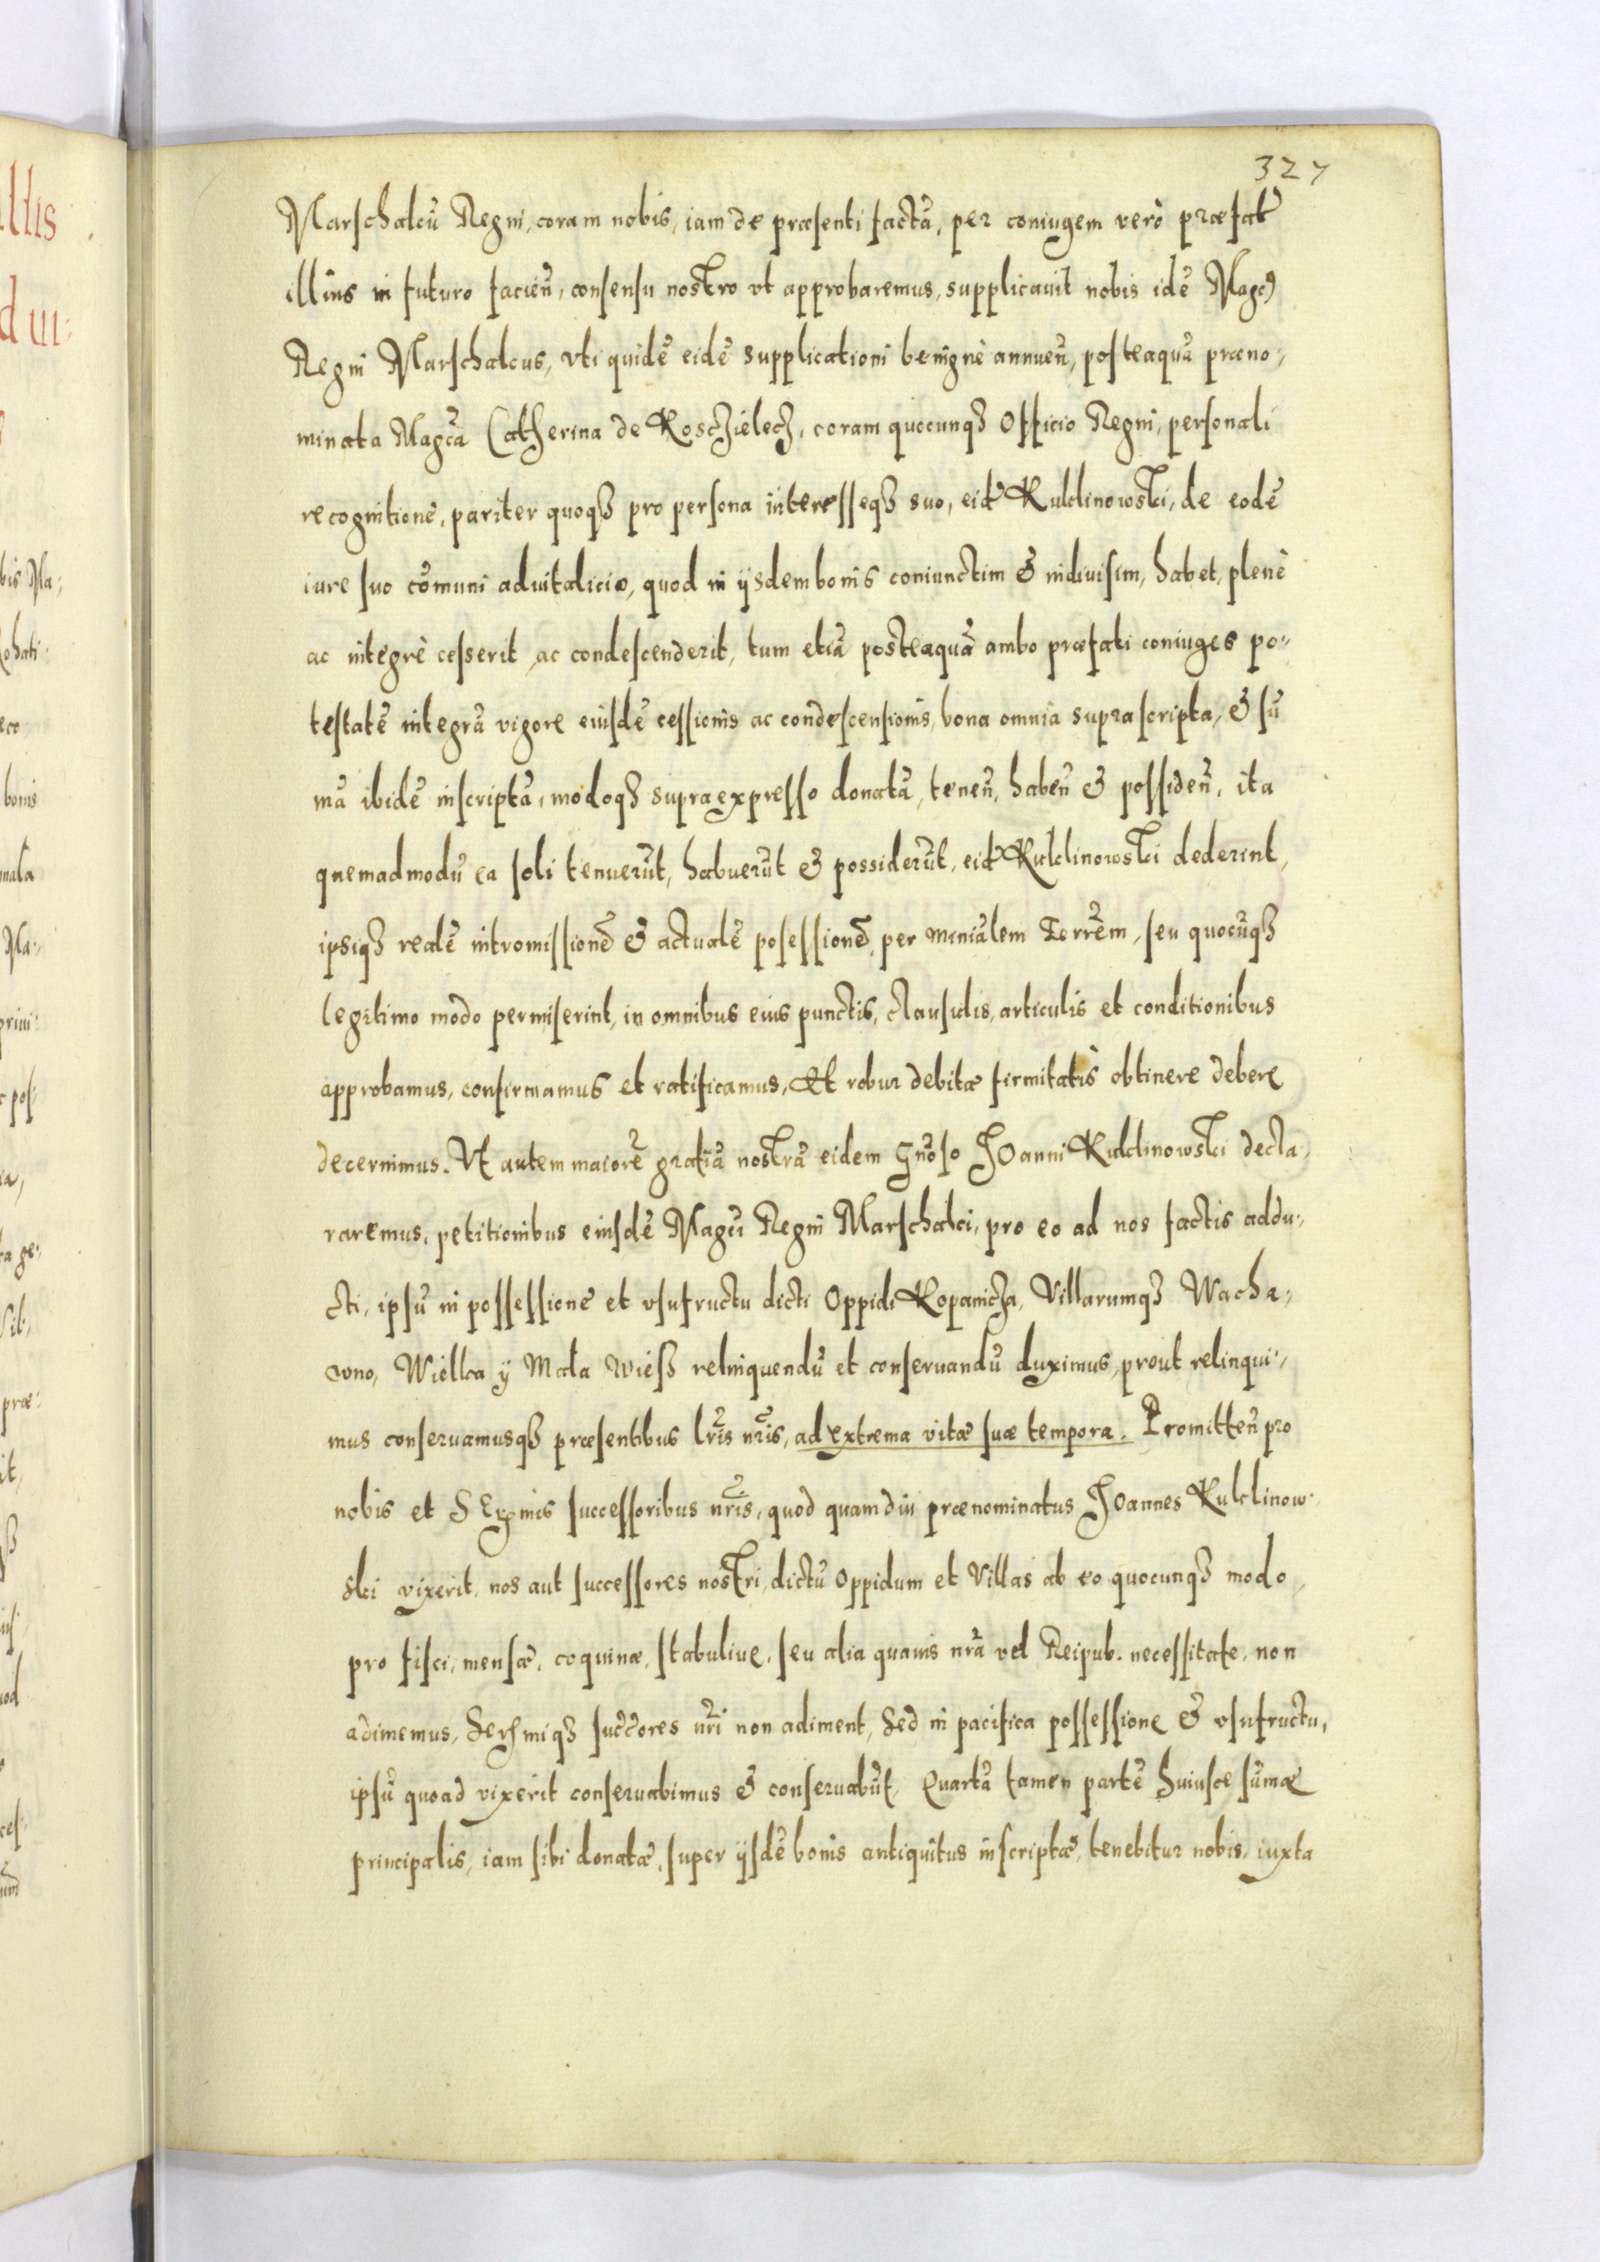 327
Marschalcũ Regni, coram nobis, iam de præsenti factã, per coniugem verò præfat
illius in futuro facień, consensu nostro vt approbaremus, supplicauit nobis idẽ Magcus
Regni Marschalcus, vti quidẽ eidẽ supplicationi benignè annueñ, posteaquã præno:
minata Magca Catherina de Koschielecz, coram quocunqз Officio Regni, personali
recognitione, pariter quoqз pro persona interesseqз suo, eid Kuklinowski, de eodẽ
iure suo cõmuni aduitalicio, quod in ijsdem bonis coniunctim & indiuisim, habet, plenè
ac integrè cesserit ac condescenderit, tum etiã posteaquã ambo præfati coniuges po:
testatẽ integrã vigore eiusdẽ cessionis ac condescensionis, bona omnia suprascripta, & sũ
mã ibidẽ inscriptã, modoqз supraexpresso donatã, teneñ, habeñ & possideñ, ita
quemadmodũ ea soli tenuerũt, habuerũt & possiderũt, eid Kuklinowski dederint,
ipsiqз realẽ intromissionẽ & actualẽ posessionẽ, per miniãlem Terrẽm, seu quocũqз
legitimo modo permiserint, in omnibus eius punctis, clausulis, articulis et conditionibus
approbamus, confirmamus et ratificamus, Et robur debitæ firmitatis obtinere debere
decernimus. Vt autem maiorẽ gratiã nostrã eidem Gñoso Joanni Kuklinowski decla,
raremus, petitionibus eiusdẽ Magci Regni Marschalci, pro eo ad nos factis addu:
cti, ipsũ in possessione et vsufructu dicti Oppidi Kopanicza, Villarumqз Wacha:
wno, Wielka ÿ Mala wieß relinquendũ et conseruandũ duximus, prout relinqui:
mus conseruamusqз præsentibus lr̃is nr̃is, ad extrema vitæ suæ tempora. Promitteñ pro
nobis et S Erẽnis successoribus nr̃is, quod quamdiu prænominatus Joannes Kuklinow
ski vixerit, nos aut successores nostri, dictũ Oppidum et Villas ab eo quocunqз modo,
pro fisci, mensæ, coquinæ, stabuliue, seu alia quauis nr̃a vel Reipub. necessitate, non
adimemus, Serẽmiqз succores nr̃i non adiment, Sed in pacifica possessione & vsufructu,
ipsũ quoad vixerit conseruabimus & conseruabũt, Quartã tamen partẽ huiusce sũmæ
principalis, iam sibi donatæ, super ijsdẽ bonis antiquitus inscriptæ, tenebitur nobis, iuxta